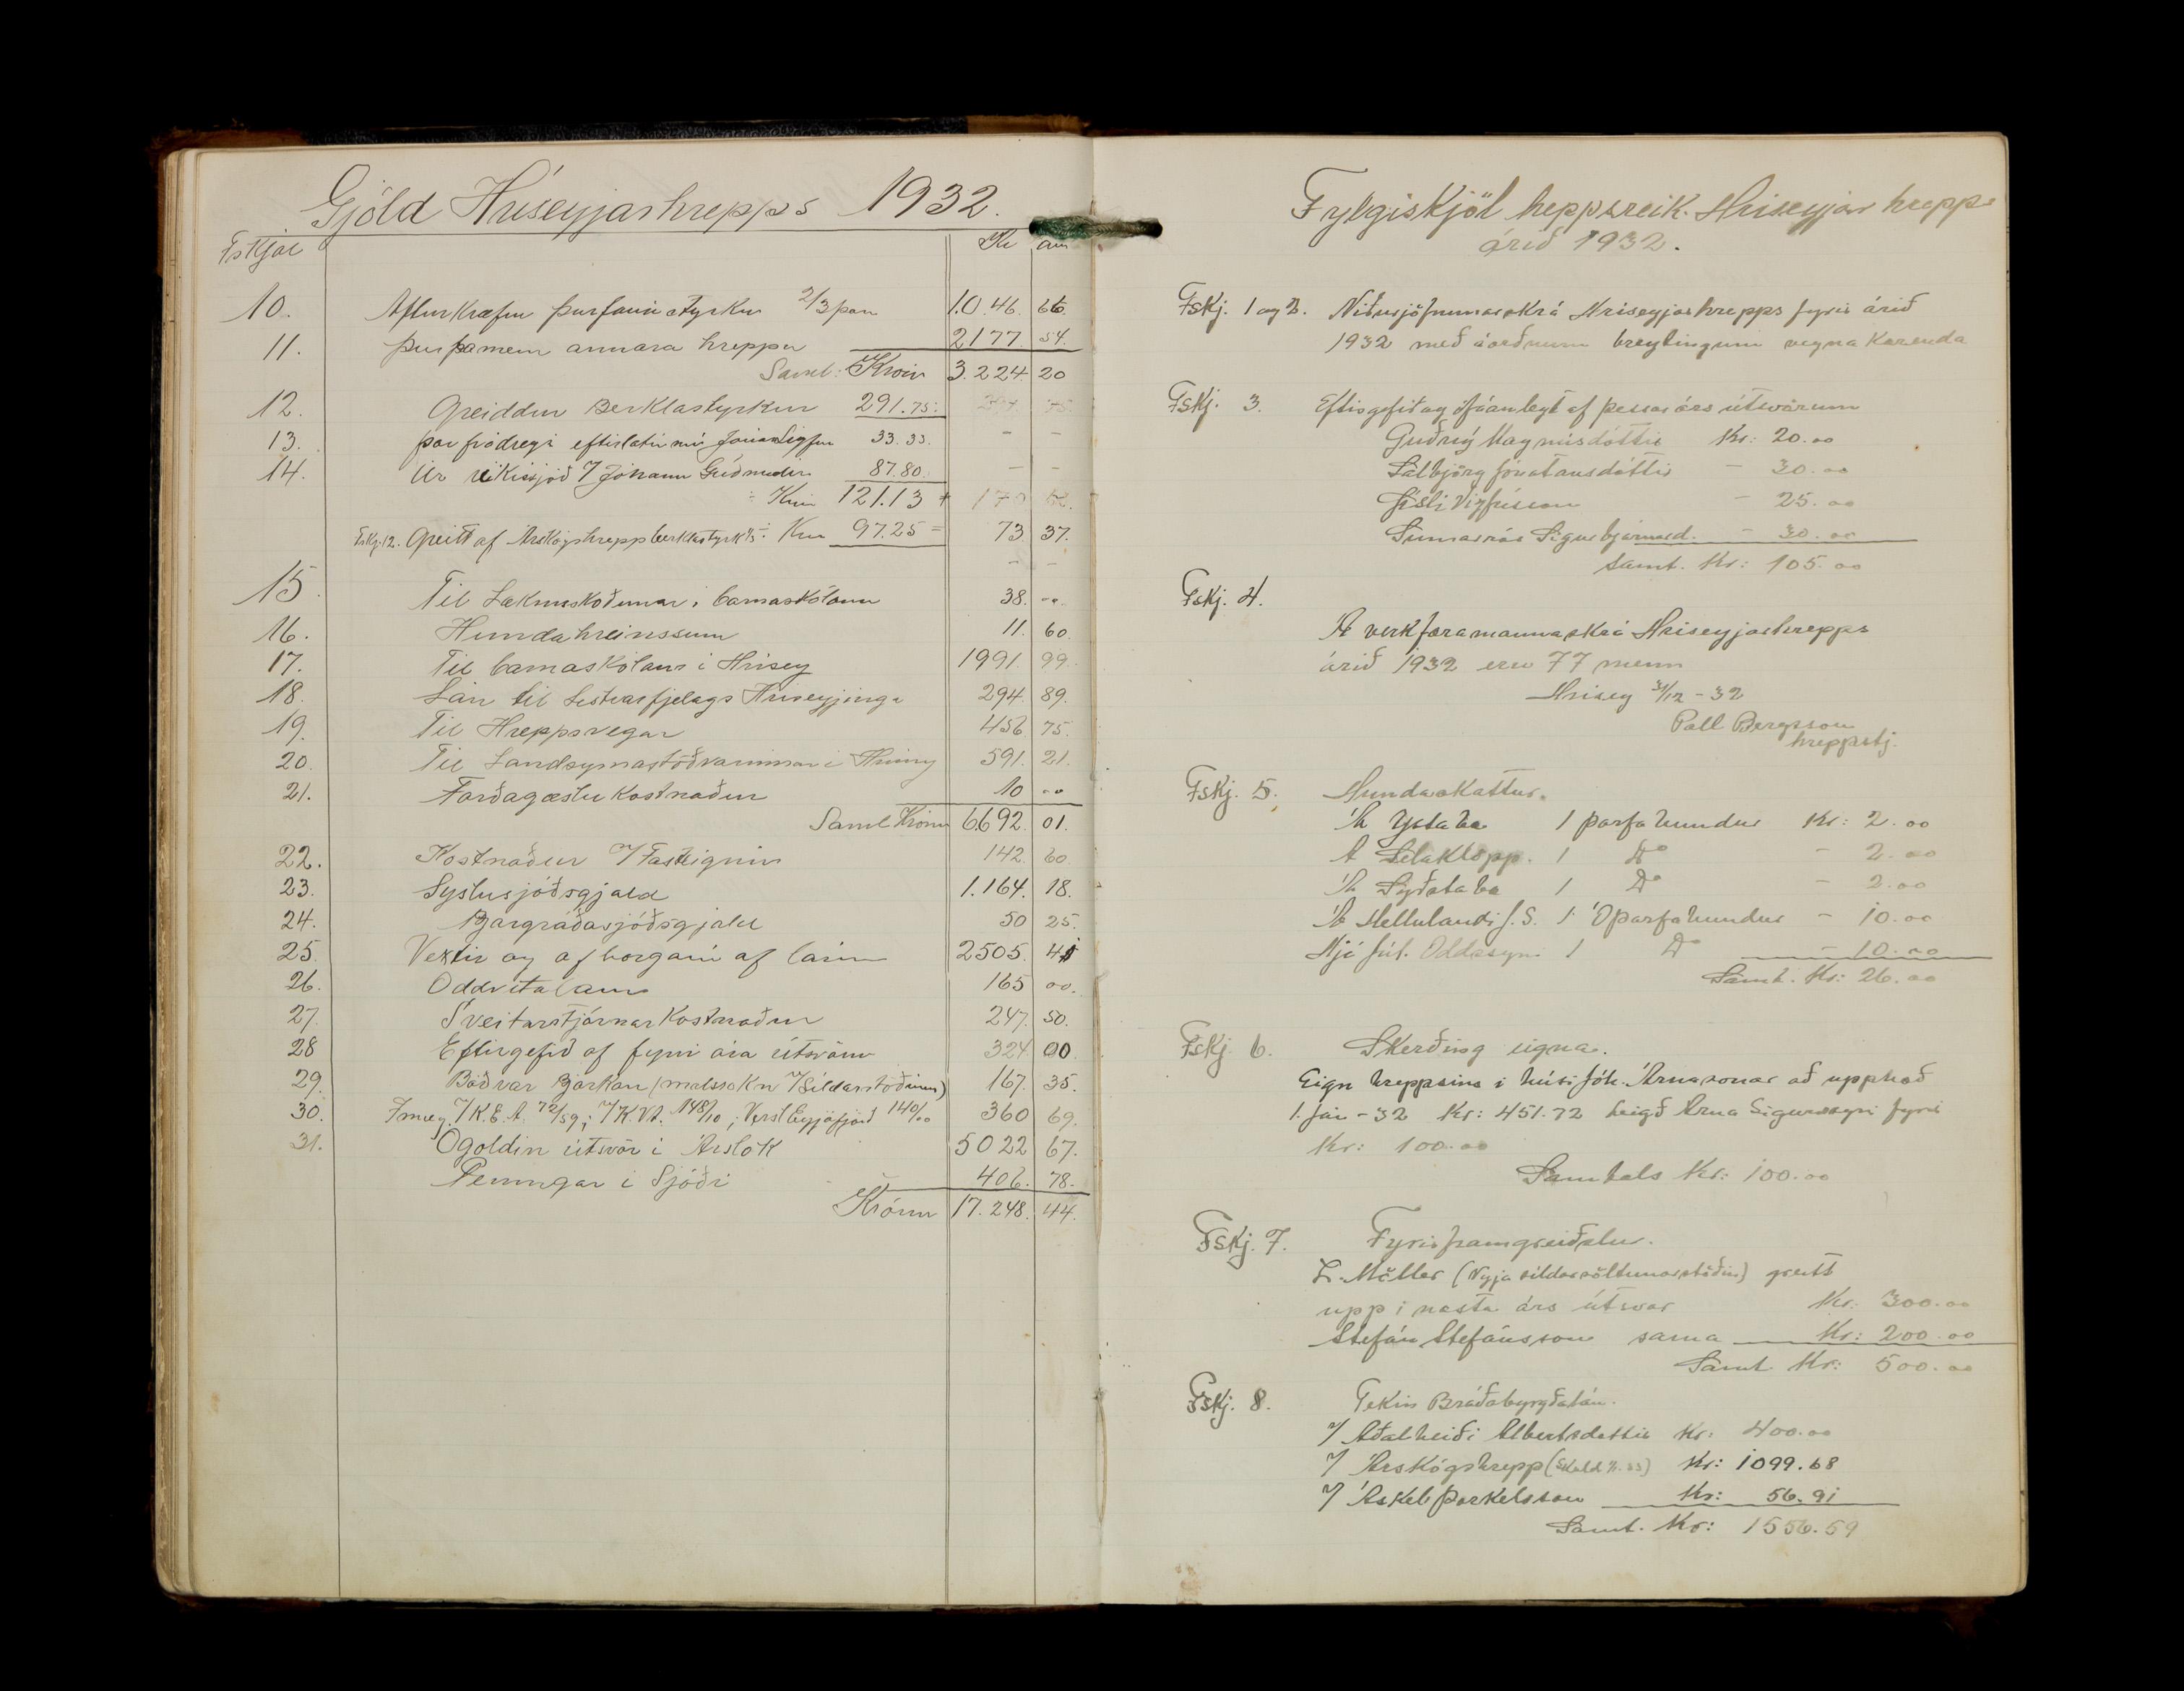 Gjöld Hríseyjarhrepps 1932.
Fskjöl Kr au
10. Afturkræfur þurfamstyrkur 2/3 par 1.046. 66.
11. Þurfamenn annara hreppa 2177. 54.
Samt: Krónr 3.224. 20
12. Greiddur Berklastyrkur 291.75.
13. þar frádregi eftirlátin 33.33. - -
14. Úr ríkissjóð v/ Jóhann 87.80. - -
Krur 121.13 +
Fskj. 12. Greitt af Árskógshrepp berklastyrk Kru 97.25 = 73 37.
- -
15. Til Læknisskoðunar í barnaskólanum 38. 00.
16. Hundahreinssun 11. 60.
17. Til barnaskólans i Hrisey 1991. 99.
18. Lán til Lestrarfjelags Hriseyjinga 294. 89.
19. Til Hreppsvegar 456. 75.
20. Til Landsymastöðvarinnar i Hrisey 591. 21.
21. Forðagæslu Kostnaður 10 00
Samt Krónur 6692. 01.
22. Kostnaður v/ Fasteignir 142. 60
23. Syslusjóðsgjald 1.164. 18.
24. Bjargráðasjóðsgjald 50 25.
25. Vextir og afborganir af lánum 2505. 41
26. Oddvitalaun 165 00.
27. Sveitarstjórnar Kostnaður 247. 50.
28 Eftirgefið af fyrri ára útsvörum 324. 00.
29. Böðvar Bjarkan (málssókn v/ Síldarstöðinni) 167. 35.
30. v/ K.E.A. 72/59; v/ K.V.A. 148/10; Versll Eyjafjörð 140/00 360 69.
31. Ógoldin útsvör í Árslok 5022 67.
Peningar i Sjóði 406. 78.
Krónur 17.248. 44.
Fylgiskjöl heppsreik. Hriseyjar hrepps
árið 1932.
Fskj. 1 og 2. Niðurjöfnunarskrá Hriseyjarhrepps fyrir árið
1932 með áorðnum breytingum vegna Kærenda
Fskj. 3. Eftirgefið og ófáanlegt af þessa árs útsvörum
Guðný Magnúsdóttir Kr: 20.00
Salbjörg Jónatansdóttir - 30.00
Gísli Vigfússon - 25.00
Sumarrós Sigurbjörnsd. - 30.00
Samt. Kr: 105.00
Fskj. 4.
Á verkfæramannaskrá Hriseyjarhrepps
árið 1932 eru 77 menn
Hrisey 31/12 - 32
Páll Bergsson
hreppstj.
Fskj. 5. Hundaskattur.
Á Ystabæ 1 þarfahundur Kr: 2.00
Á Selaklöpp. 1 Do - 2.00
Á Syðstabæ 1 Do - 2.00
Á Hellulandi J.S. 1 Óþarfahundur - 10.00
Hjá Júl. Oddssyni 1 Do - 10.00
Samt. Kr: 26.00
Fskj. 6. Skerðing eigna.
Eign hreppsins i húsi Jóh. Árnasonar að upphæð
1. jan - 32 Kr: 451.72 leigð Árna Sigurssyni fyrir
Kr: 100.00
Samtals Kr: 100.00
Fskj. 7. Fyrirframgreiðslur.
L. Möller (Nyja síldarsöltunarstöðin) greitt
upp i næsta árs útsvar Kr: 300.00
Stefán Stefánsson sama Kr: 200.00
Samt. Kr: 500.00
Fskj. 8. Tekin Bráðabyrgðalán.
v/ Aðalheiði Albertsdóttir Kr: 400.00
v/ Árskógshrepp Kr: 1099.68
v/ Áskel Þorkelsson Kr: 56.91
Samt. Kr: 1556.59